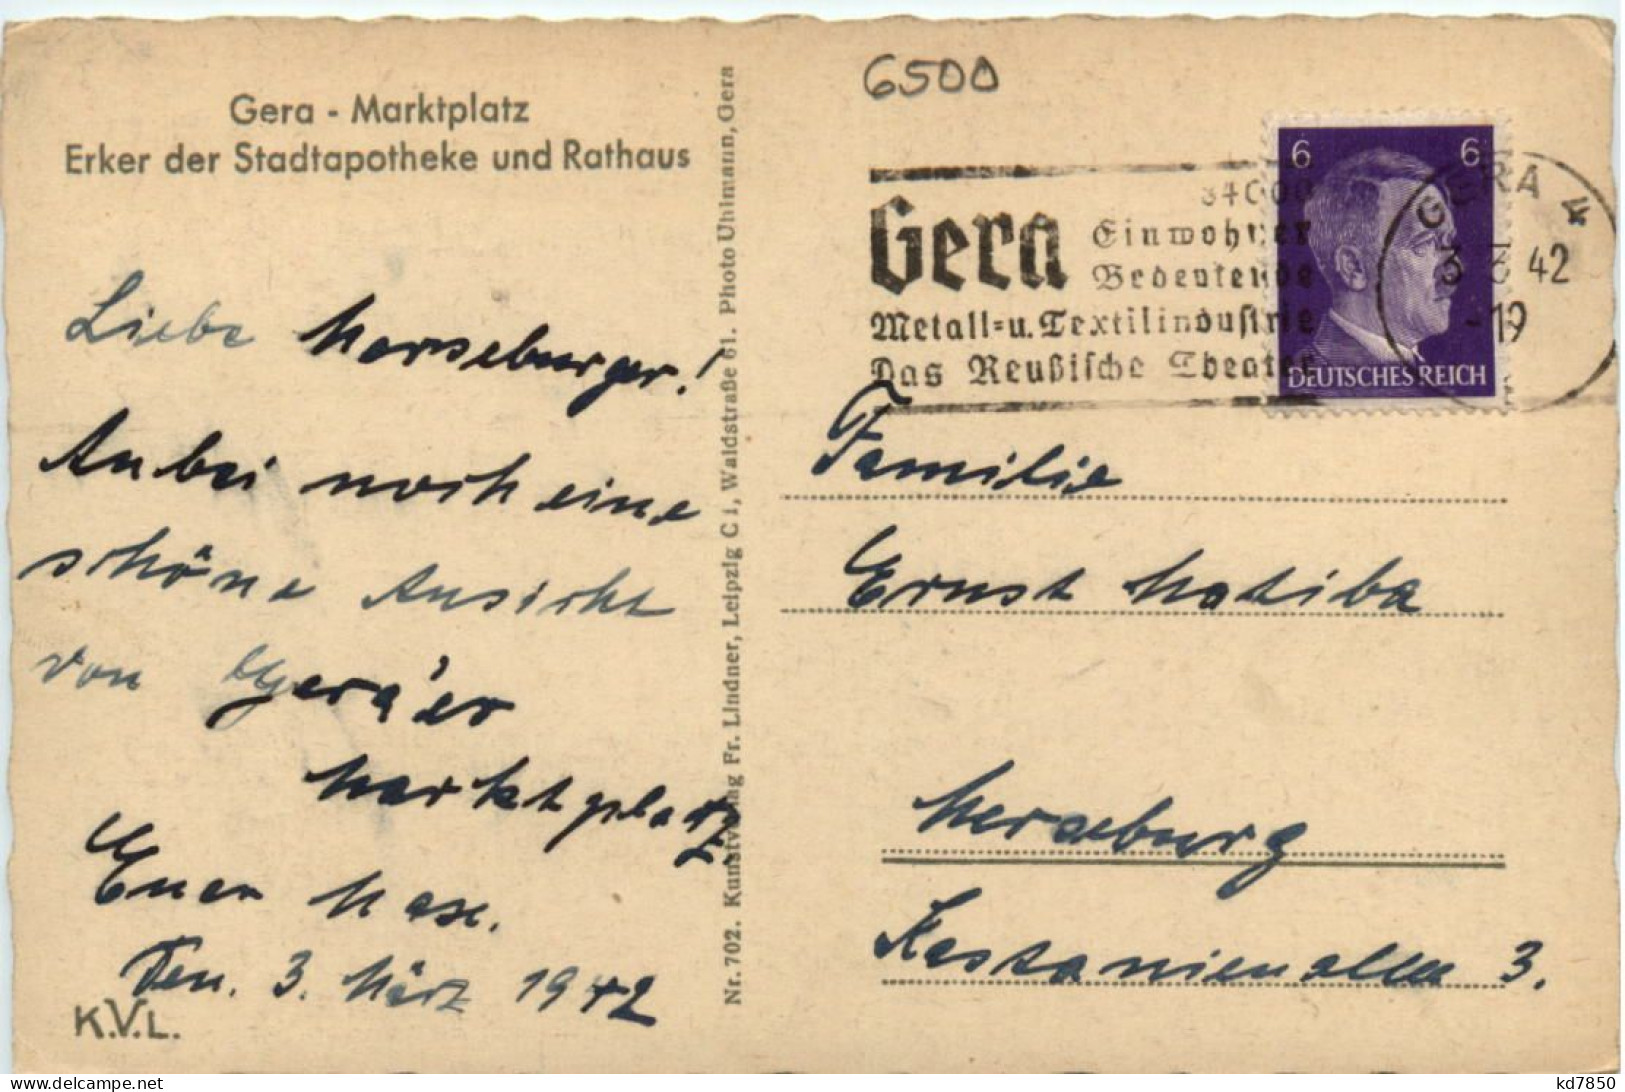 Gera - Marktplatz
Erker der Stadtapotheke und Rathaus
Liebe Merseburger!
Anbei noch eine
schöne Ansicht
von Gera'er
Marktplatz
Euer Max.
Den. 3. März 1942
K.V.L.
Nr. 702. Kunstverlag Fr. Lindner, Leipzig C 1, Waldstraße 61. Photo Uhlmann, Gera
6500
Gera
84000
Einwohner
Bedeutende
Metall=u. Textilindustrie
Das Reußische Theater
6 6
DEUTSCHES REICH
GERA 4
3 3 42
-19
Familie
Ernst Matiba
Merseburg
Kastanienallee 3.
kd7850